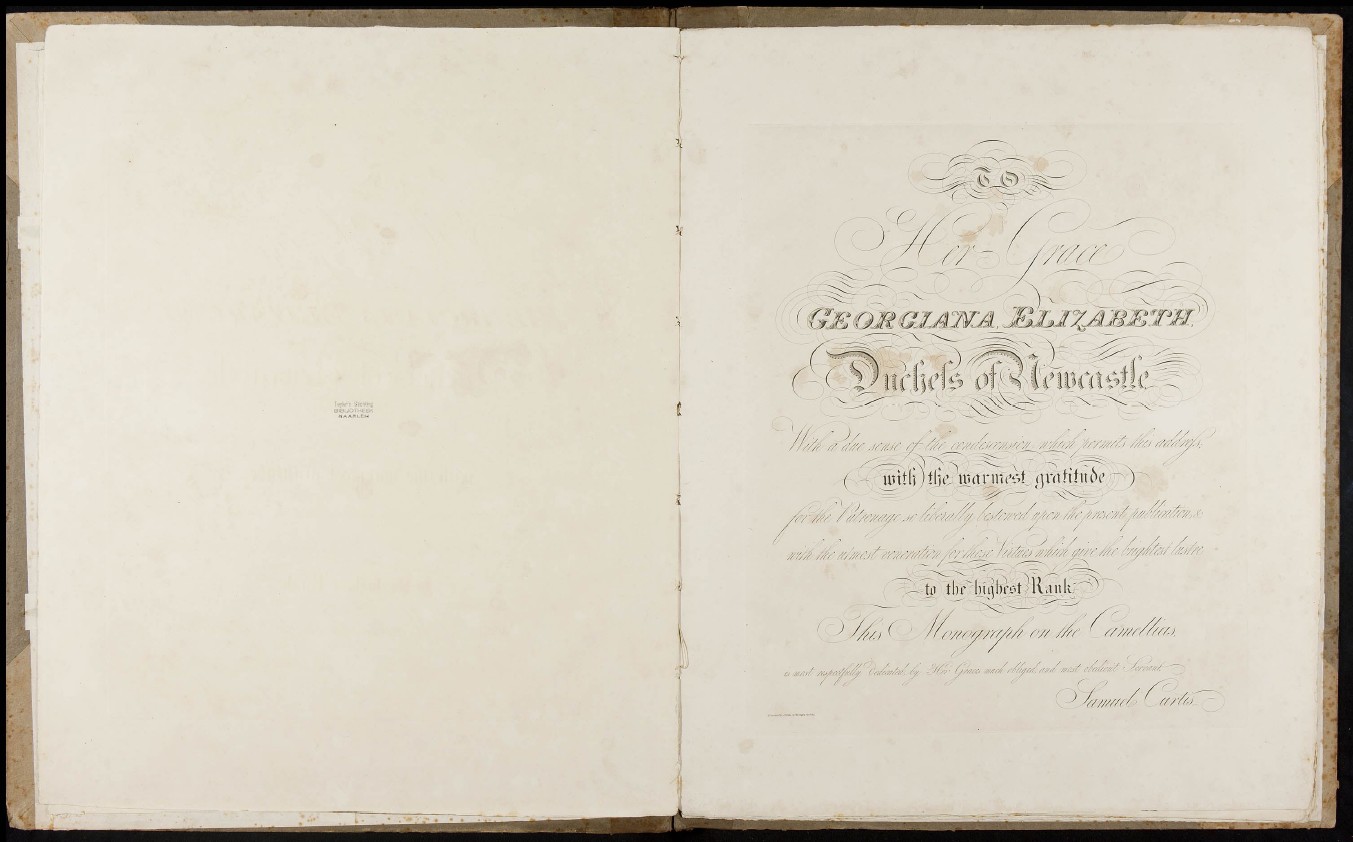 Teylers Stichting
BIBLIOTHEEK
HAARLEM
TO
Her Grace
GEORGIANA ELIZABETH,
Duchess of Newcastle
With a due sense of the condescension which permits this address,
with the warmest gratitude
for the Patronage so liberally bestowed upon the present publication, &
with the utmost veneration for those Virtues which give the brightest lustre
to the highest Rank
This Monograph on the Camellias,
is most respectfully Dedicated, by Her Graces much obliged, and most obedient Servant
Samuel Curtis